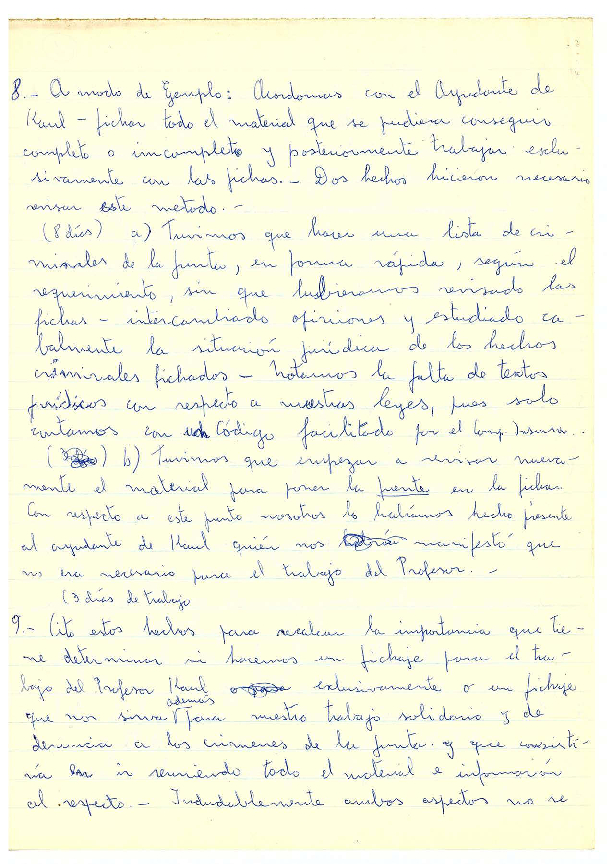 8.- A modo de Ejemplo: Acordamos con el Ayudante de
Kaul - fichar todo el material que se pudiera conseguir
completo o imcompleto y posteriormente trabajar exclu-
sivamente con las fichas.- Dos hechos hicieron necesario
revisar este metodo.-
(8 días) a) Tuvimos que hacer una lista de cri-
minales de la Junta, en forma rápida, según el
requerimiento, sin que hubieramos revisado las
fichas - intercambiado opiniones y estudiado ca-
balmente la situación jurídica de los hechos
criminales fichados - Notamos la falta de textos
jurídicos con respecto a nuestras leyes, pues solo
contamos con un Código facilitado por el Comp. Insunza.
b) Tuvimos que empezar a revisar nueva-
mente el material para poner la fuente en la ficha.
Con respecto a este punto nosotros lo habíamos hecho presente
al ayudante de Kaul quién nos manifestó que
no era necesario para el trabajo del Profesor.-
(3 días de trabajo
9.- Cito estos hechos para recalcar la importancia que tie-
ne determinar si hacemos un fichaje para el tra-
bajo del Profesor Kaul exclusivamente o un fichaje
que nos sirva además para nuestro trabajo solidario y de
denuncia a los crimenes de la Junta y que consisti-
ría en ir reuniendo todo el material e información
al respecto.- Indudablemente ambos aspectos no se